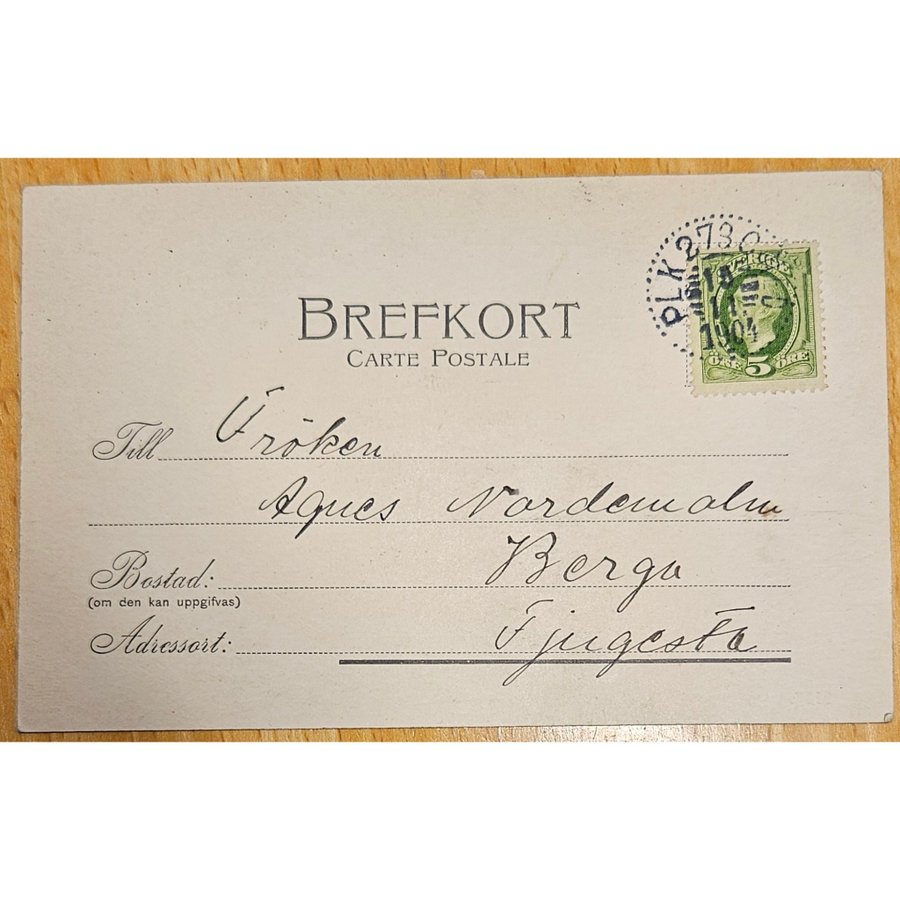 BREFKORT
CARTE POSTALE
PLK 273
11
1904
SVERIGE
ÖRE 5 ÖRE
Till Fröken
Agnes Nordemalm
Bostad: Berga
(om den kan uppgifvas)
Adressort: Fjugesta